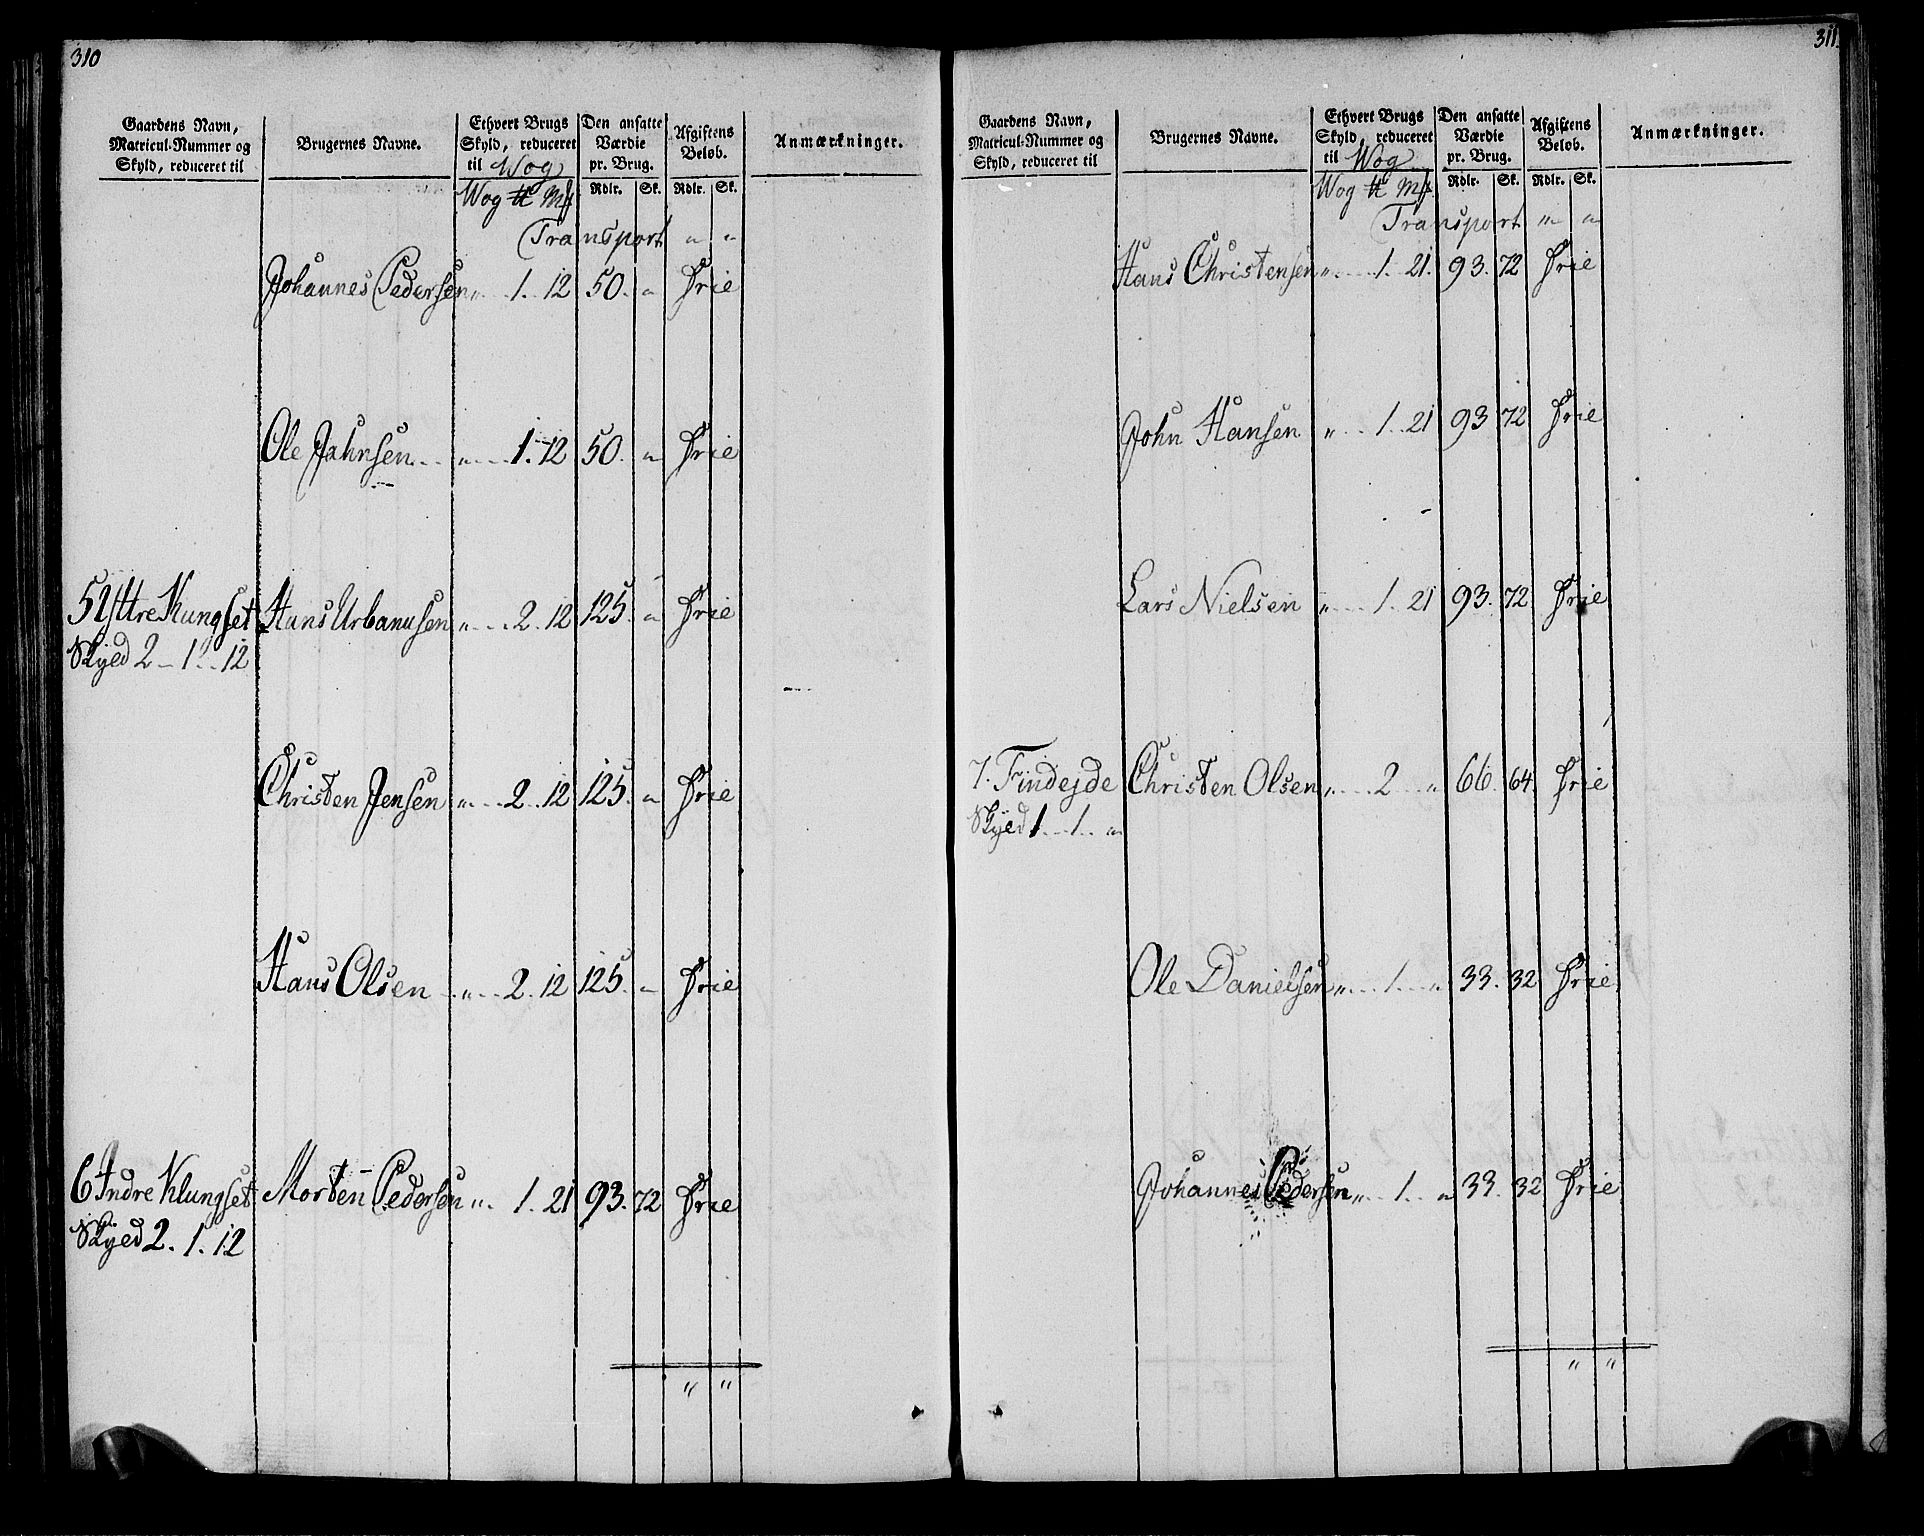 310
Gaardens Navn, Matricul-Nummer og Skyld, reduceret til
Brugernes Navne.
Ethvert Brugs Skyld, reduceret til Wog
Den ansatte Værdie pr. Brug.
Afgiftens Beløb.
Anmærkninger.
Wog ℔ Mk Rdlr. Sk. Rdlr. Sk.
Transport " "
Johannes Pedersen " 1 12 50. " Frie
Ole Jahnsen " 1 12 50. " Frie
5 Yttre Klungset Hans Urbanusen " 2 12 125 " Frie
Skyld 2 - 1 - 12
Christen Jensen " 2 12 125. " Frie
Hans Olsen " 2 12 125. " Frie
6 Indre Klungset Morten Pedersen " 1 21 93. 72 Frie
Skyld 2. 1. 12
" "
311.
Gaardens Navn, Matricul-Nummer og Skyld, reduceret til
Brugernes Navne.
Ethvert Brugs Skyld, reduceret til Wog
Den ansatte Værdie pr. Brug.
Afgiftens Beløb.
Anmærkninger.
Wog ℔ Mk. Rdlr. Sk. Rdlr. Sk.
Transport " "
Hans Christensen " 1 21. 93. 72 Frie
John Hansen " 1 21 93 72 Frie
Lars Nielsen " 1 21 93. 72 Frie
7. Findejde Christen Olsen " 2 " 66. 64 Frie
Skyld 1 - 1 - "
Ole Danielsen " 1 " 33. 32 Frie
Johannes Pedersen " 1 " 33. 32 Frie
" "